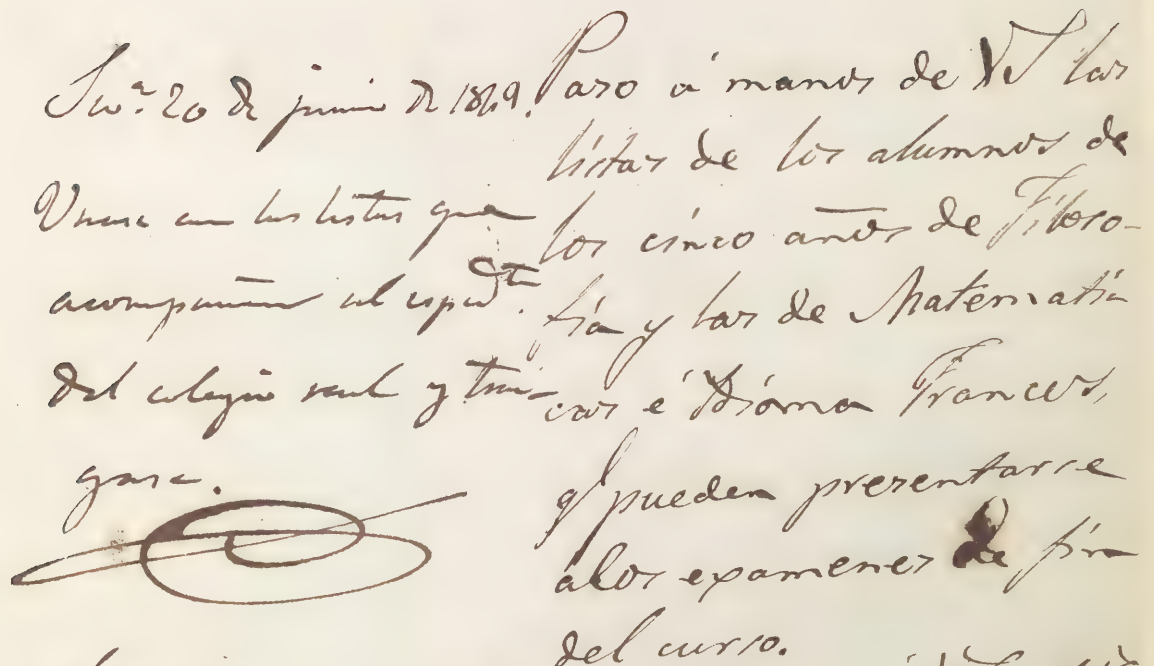 20 de junio de 1849.
Unase con las listas que
acompañan al expdte.
del colegio real y trai-
gase.
Paso á manos de VS las
listas de los alumnos de
los cinco años de Filoso-
fia y las de Matemati-
cas é Idioma Frances,
q̄ pueden presentarse
alos examenes de fin
del curso.